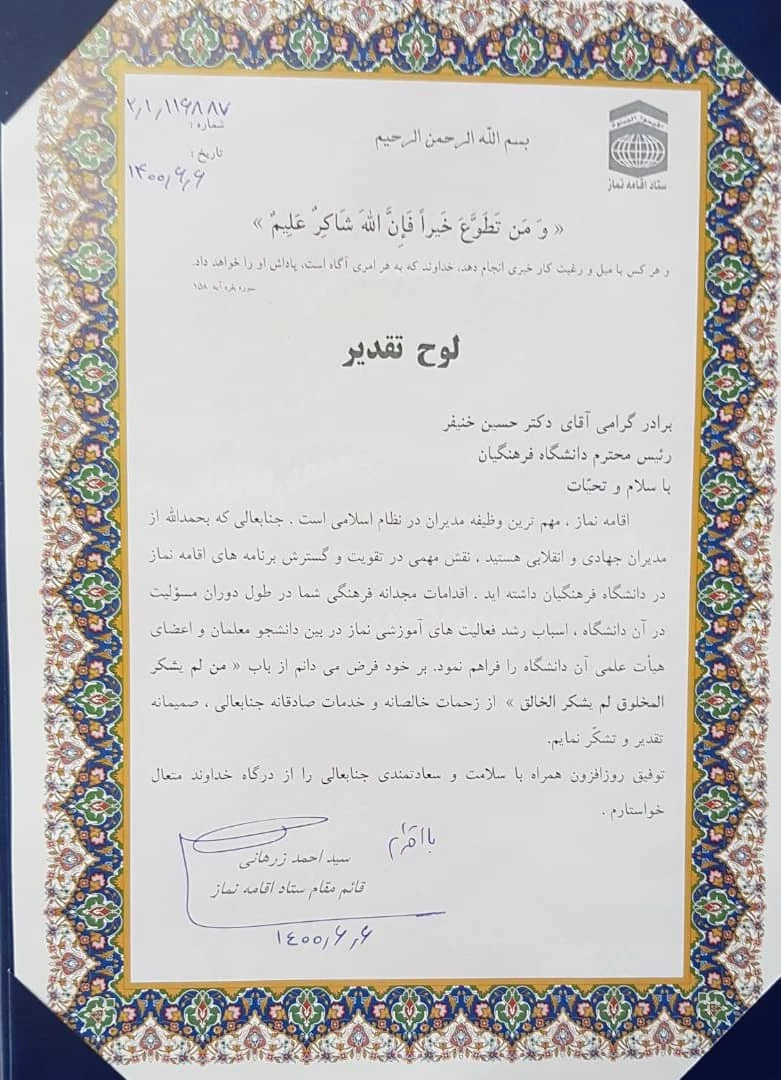 اقیموا الصلوة
ستاد اقامه نماز
بسم الله الرحمن الرحیم
شماره :
تاریخ :
۱۴۰۰٫۶٫۶
« وَ مَن تَطَوَّعَ خَیراً فَإِنَّ اللهَ شَاکِرٌ عَلِیمٌ »
و هر کس با میل و رغبت کار خیری انجام دهد، خداوند که به هر امری آگاه است، پاداش او را خواهد داد.
سوره بقره آیه ۱۵۸
لوح تقدیر
برادر گرامی آقای دکتر حسین خنیفر
رئیس محترم دانشگاه فرهنگیان
با سلام و تحیّات
اقامه نماز ، مهم ترین وظیفه مدیران در نظام اسلامی است . جنابعالی که بحمدالله از
مدیران جهادی و انقلابی هستید ، نقش مهمی در تقویت و گسترش برنامه های اقامه نماز
در دانشگاه فرهنگیان داشته اید . اقدامات مجدانه فرهنگی شما در طول دوران مسؤلیت
در آن دانشگاه ، اسباب رشد فعالیت های آموزشی نماز در بین دانشجو معلمان و اعضای
هیأت علمی آن دانشگاه را فراهم نمود. بر خود فرض می دانم از باب « من لم یشکر
المخلوق لم یشکر الخالق » از زحمات خالصانه و خدمات صادقانه جنابعالی ، صمیمانه
تقدیر و تشکّر نمایم.
توفیق روزافزون همراه با سلامت و سعادتمندی جنابعالی را از درگاه خداوند متعال
خواستارم .
با احترام
سید احمد زرهانی
قائم مقام ستاد اقامه نماز
۱۴۰۰٫۶٫۶